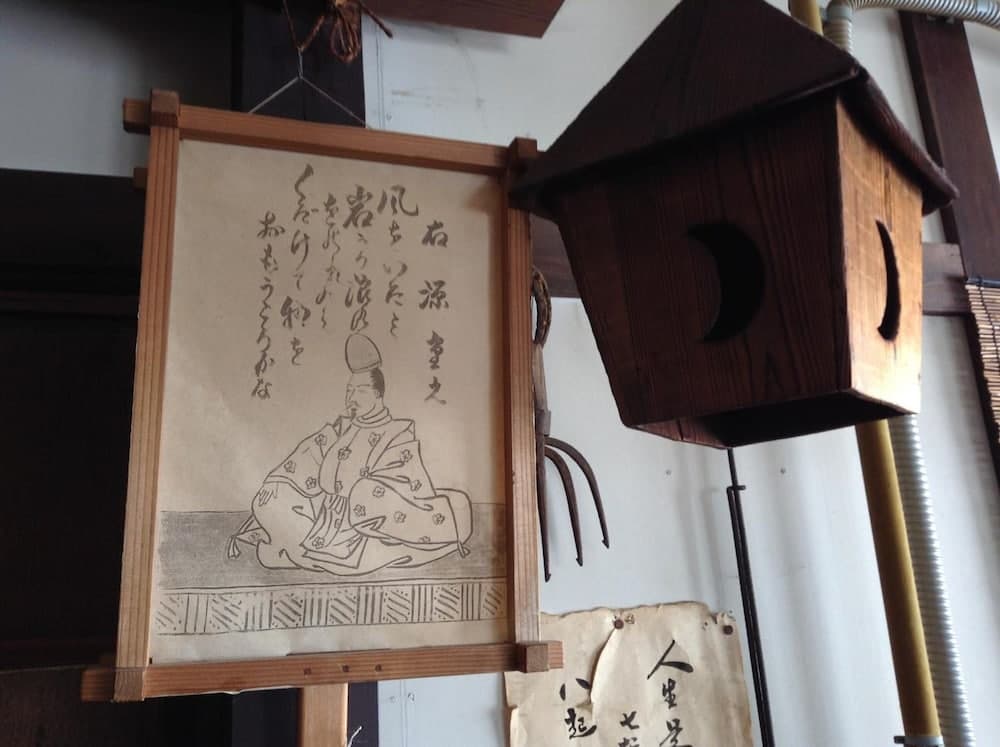 右 源重之
風をいたミ
岩うつ浪の
をのれのミ
くだけて物を
おもうころかな
人生
七転
八起